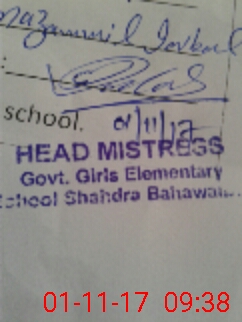 school. 01/11/17
HEAD MISTRESS
Govt. Girls Elementary
School Shahdra Bahawal...
01-11-17 09:38